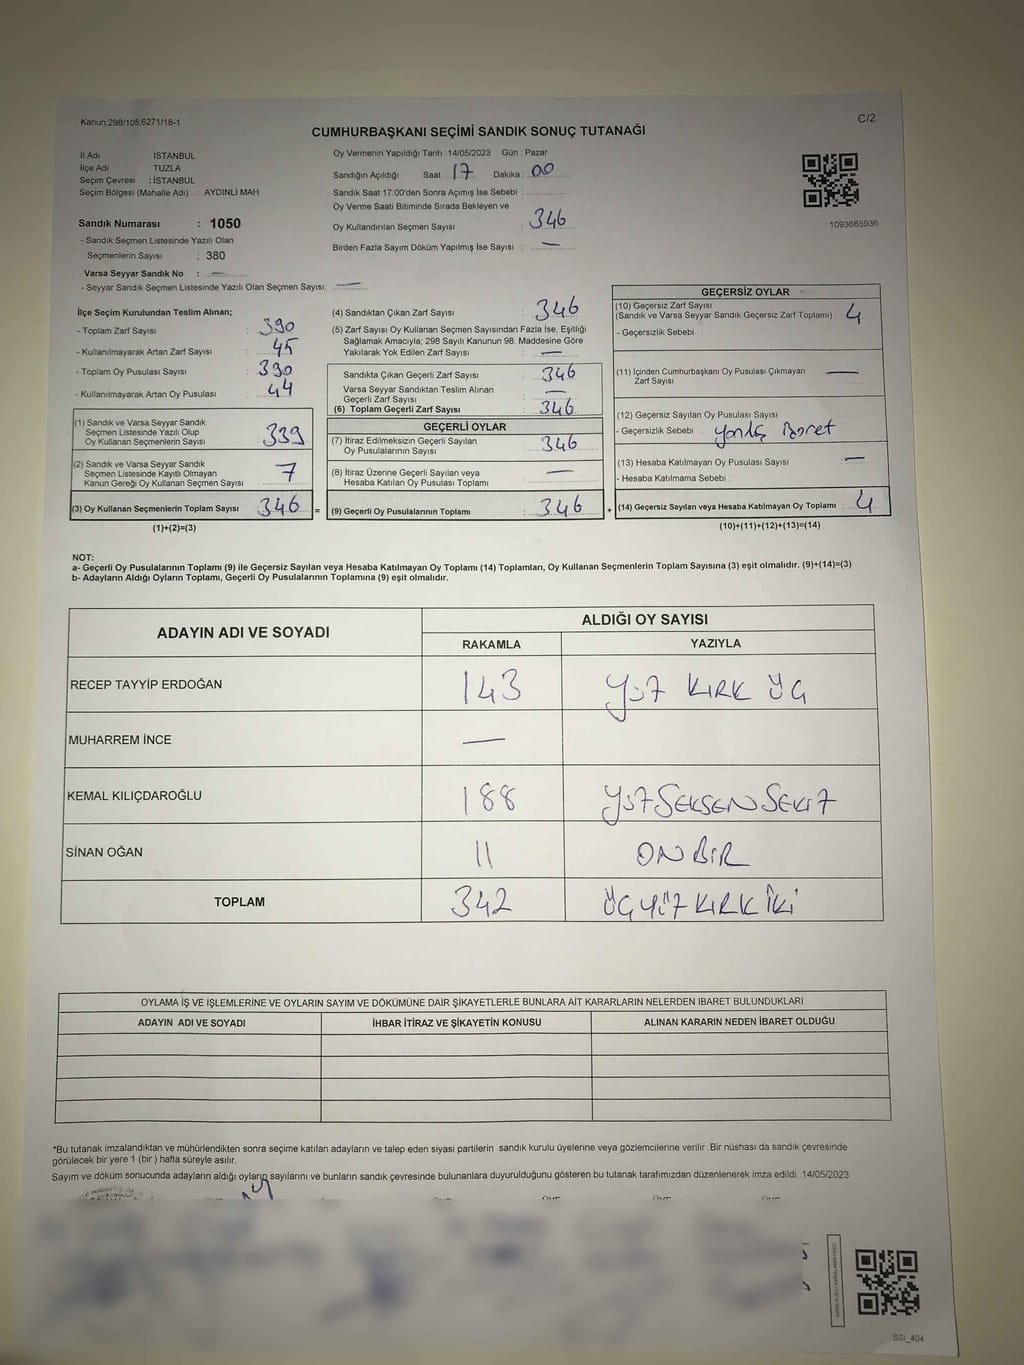 Kanun;298/105,6271/18-1
C/2
CUMHURBAŞKANI SEÇİMİ SANDIK SONUÇ TUTANAĞI
İl Adı : İSTANBUL
İlçe Adı : TUZLA
Seçim Çevresi : İSTANBUL
Seçim Bölgesi (Mahalle Adı) : AYDINLI MAH.
Sandık Numarası : 1050
- Sandık Seçmen Listesinde Yazılı Olan
Seçmenlerin Sayısı : 380
Varsa Seyyar Sandık No : —
- Seyyar Sandık Seçmen Listesinde Yazılı Olan Seçmen Sayısı: —
Oy Vermenin Yapıldığı Tarih : 14/05/2023 Gün : Pazar
Sandığın Açıldığı Saat : 17 Dakika : 00
Sandık Saat 17:00'den Sonra Açımış İse Sebebi :
Oy Verme Saati Bitiminde Sırada Bekleyen ve
Oy Kullandırılan Seçmen Sayısı : 346
Birden Fazla Sayım Döküm Yapılmış İse Sayısı : —
1093685936
İlçe Seçim Kurulundan Teslim Alınan;
- Toplam Zarf Sayısı : 390
- Kullanılmayarak Artan Zarf Sayısı : 45
- Toplam Oy Pusulası Sayısı : 390
- Kullanılmayarak Artan Oy Pusulası : 44
(1) Sandık ve Varsa Seyyar Sandık
Seçmen Listesinde Yazılı Olup
Oy Kullanan Seçmenlerin Sayısı : 339
(2) Sandık ve Varsa Seyyar Sandık
Seçmen Listesinde Kayıtlı Olmayan
Kanun Gereği Oy Kullanan Seçmen Sayısı : 7
(3) Oy Kullanan Seçmenlerin Toplam Sayısı : 346 =
(1)+(2)=(3)
(4) Sandıktan Çıkan Zarf Sayısı : 346
(5) Zarf Sayısı Oy Kullanan Seçmen Sayısından Fazla İse, Eşitliği
Sağlamak Amacıyla; 298 Sayılı Kanunun 98. Maddesine Göre
Yakılarak Yok Edilen Zarf Sayısı : —
Sandıkta Çıkan Geçerli Zarf Sayısı : 346
Varsa Seyyar Sandıktan Teslim Alınan
Geçerli Zarf Sayısı : —
(6) Toplam Geçerli Zarf Sayısı : 346
GEÇERLİ OYLAR
(7) İtiraz Edilmeksizin Geçerli Sayılan
Oy Pusulalarının Sayısı : 346
(8) İtiraz Üzerine Geçerli Sayılan veya
Hesaba Katılan Oy Pusulası Toplamı : —
(9) Geçerli Oy Pusulalarının Toplamı : 346 +
GEÇERSİZ OYLAR
(10) Geçersiz Zarf Sayısı
(Sandık ve Varsa Seyyar Sandık Geçersiz Zarf Toplamı) : 4
- Geçersizlik Sebebi :
(11) İçinden Cumhurbaşkanı Oy Pusulası Çıkmayan
Zarf Sayısı —
(12) Geçersiz Sayılan Oy Pusulası Sayısı
- Geçersizlik Sebebi :
(13) Hesaba Katılmayan Oy Pusulası Sayısı : —
- Hesaba Katılmama Sebebi :
(14) Geçersiz Sayılan veya Hesaba Katılmayan Oy Toplamı : 4
(10)+(11)+(12)+(13)=(14)
NOT:
a- Geçerli Oy Pusulalarının Toplamı (9) ile Geçersiz Sayılan veya Hesaba Katılmayan Oy Toplamı (14) Toplamları, Oy Kullanan Seçmenlerin Toplam Sayısına (3) eşit olmalıdır. (9)+(14)=(3)
b- Adayların Aldığı Oyların Toplamı, Geçerli Oy Pusulalarının Toplamına (9) eşit olmalıdır.
ADAYIN ADI VE SOYADI ALDIĞI OY SAYISI
RAKAMLA YAZIYLA
RECEP TAYYİP ERDOĞAN 143 YÜZ KIRK ÜÇ
MUHARREM İNCE —
KEMAL KILIÇDAROĞLU 188 YÜZ SEKSEN SEKİZ
SİNAN OĞAN 11 ON BİR
TOPLAM 342 ÜÇ YÜZ KIRK İKİ
OYLAMA İŞ VE İŞLEMLERİNE VE OYLARIN SAYIM VE DÖKÜMÜNE DAİR ŞİKAYETLERLE BUNLARA AİT KARARLARIN NELERDEN İBARET BULUNDUKLARI
ADAYIN ADI VE SOYADI İHBAR İTİRAZ VE ŞİKAYETİN KONUSU ALINAN KARARIN NEDEN İBARET OLDUĞU
*Bu tutanak imzalandıktan ve mühürlendikten sonra seçime katılan adayların ve talep eden siyasi partilerin sandık kurulu üyelerine veya gözlemcilerine verilir .Bir nüshası da sandık çevresinde
görülecek bir yere 1 (bir ) hafta süreyle asılır.
Sayım ve döküm sonucunda adayların aldığı oyların sayılarını ve bunların sandık çevresinde bulunanlara duyurulduğunu gösteren bu tutanak tarafımızdan düzenlenerek imza edildi. 14/05/2023
SSI_404